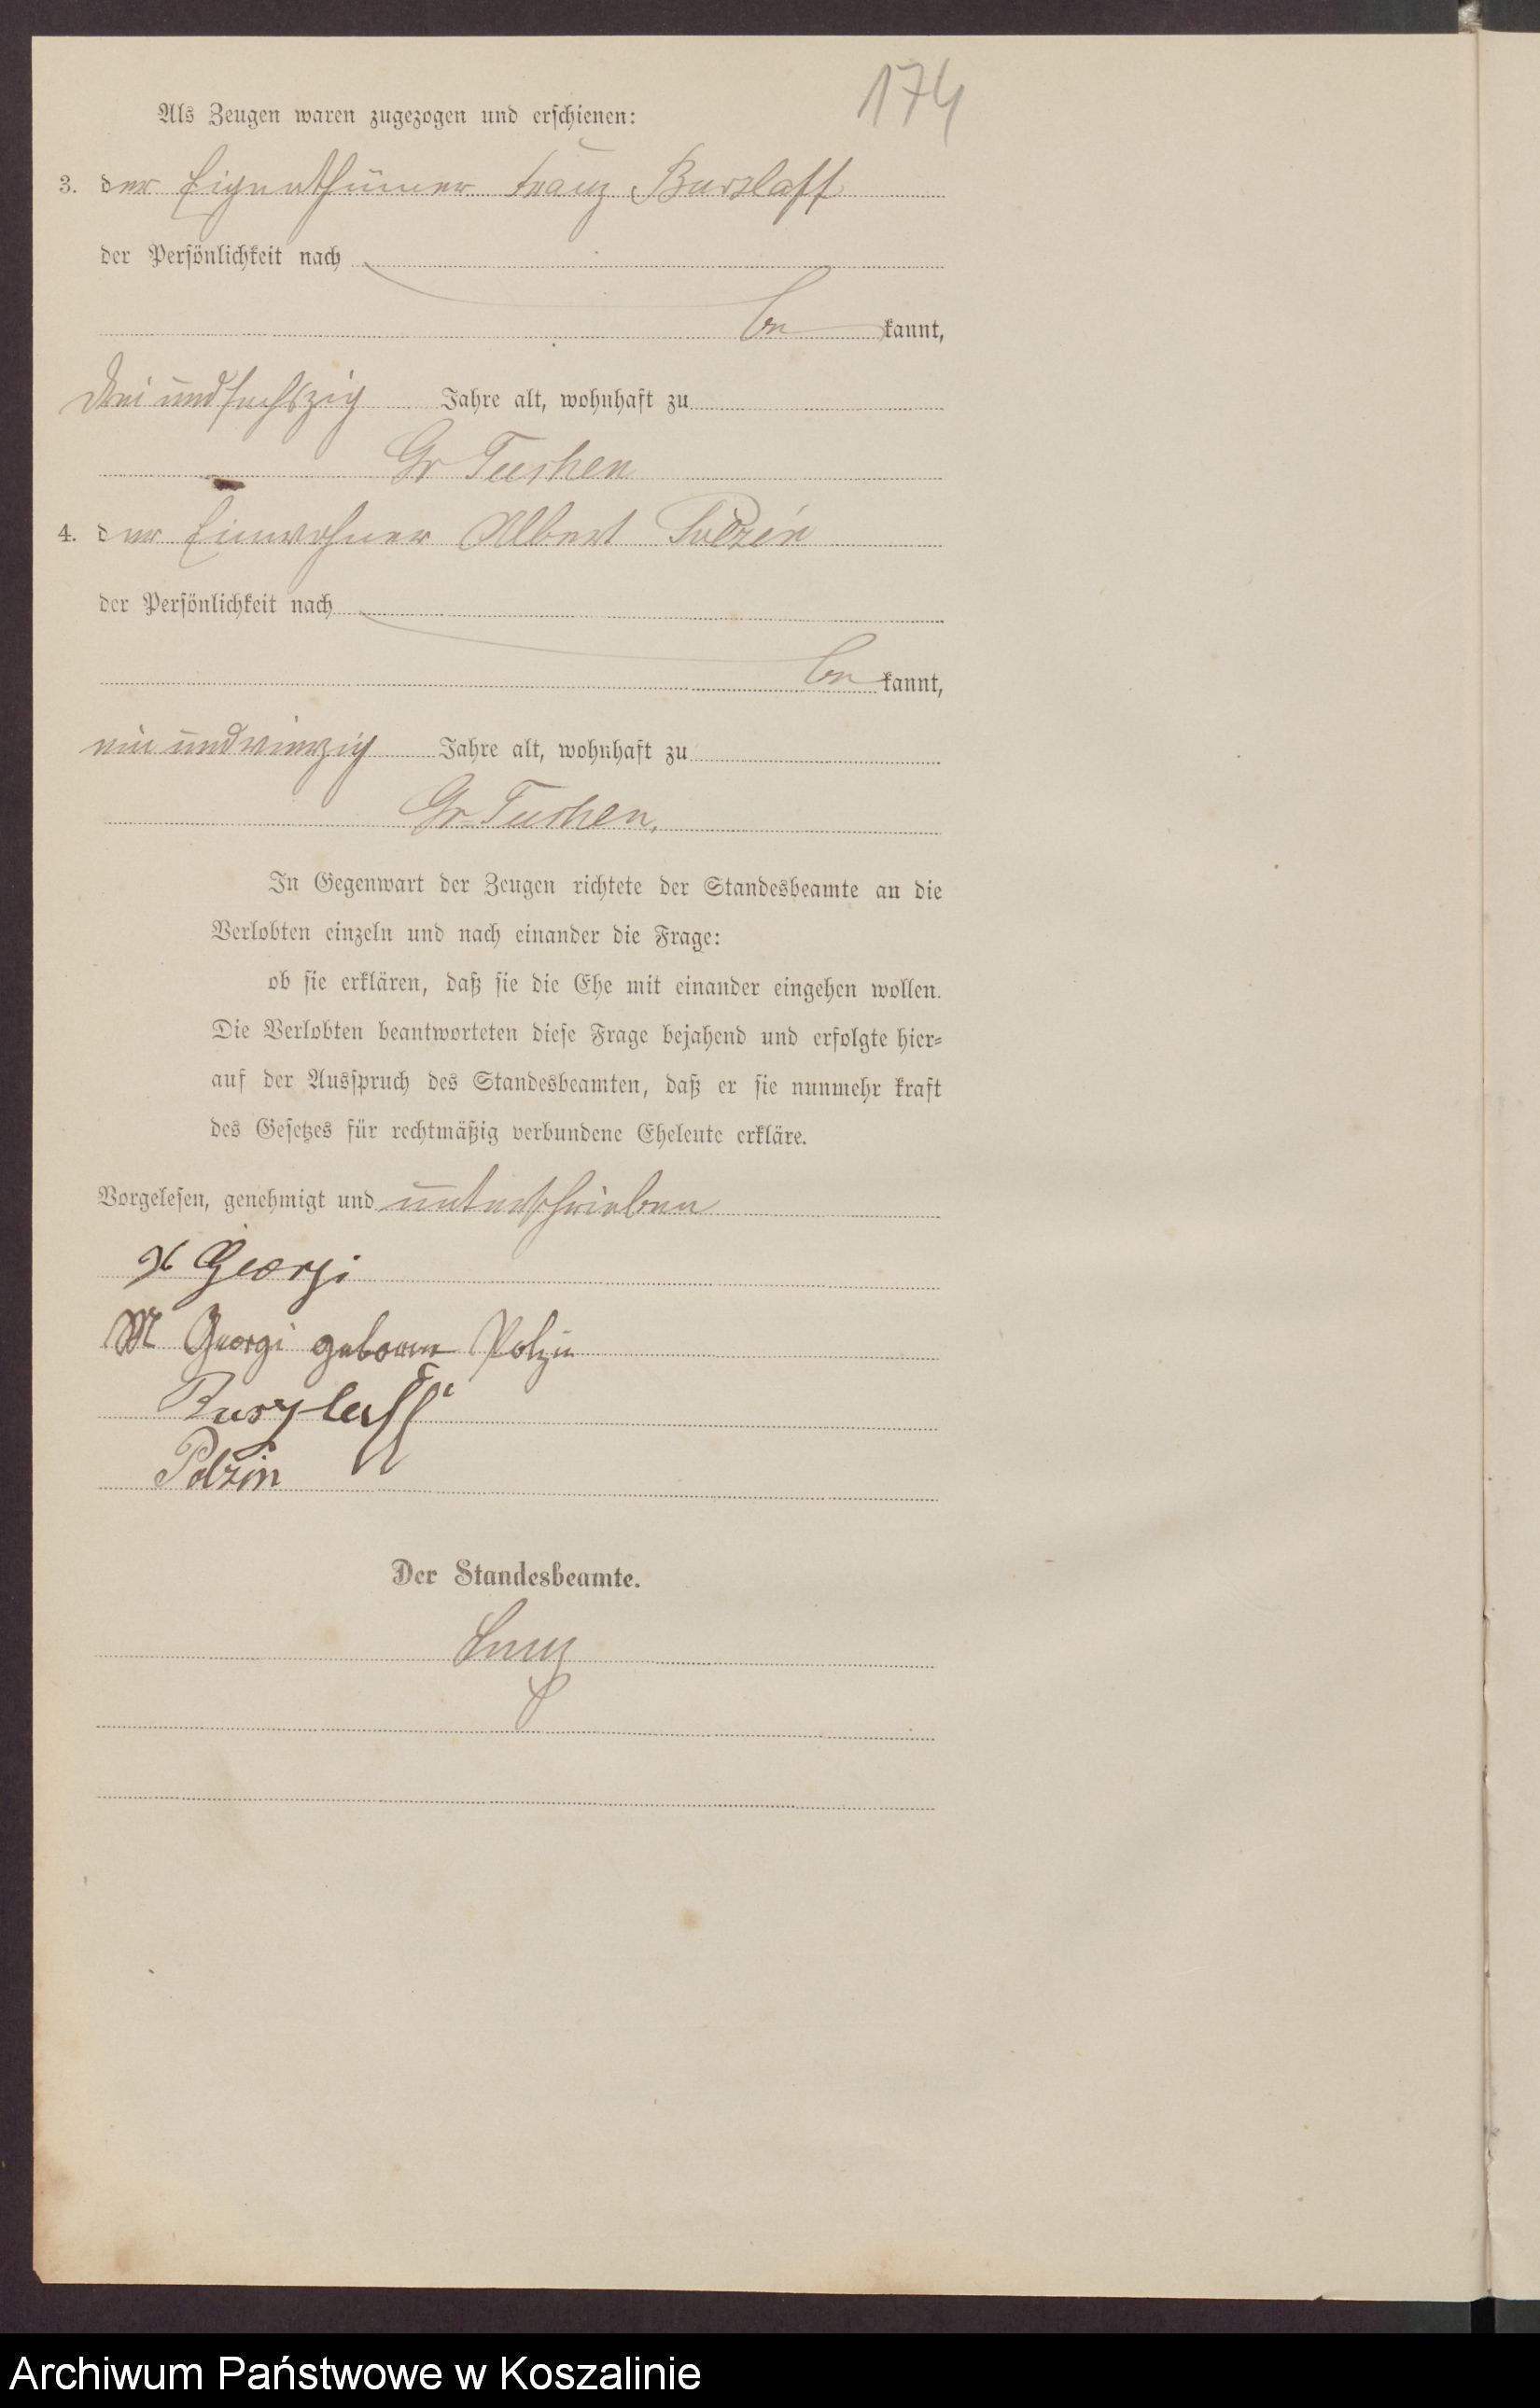 174
Als Zeugen waren zugezogen und erschienen:
3. der Eigenthümer Franz Burzlaff
der Persönlichkeit nach
be kannt,
drei und sechszig Jahre alt, wohnhaft zu
Gr Tuchen
4. der Einwohner Albert Polzin
der Persönlichkeit nach
be kannt,
ein und vierzig Jahre alt, wohnhaft zu
Gr Tuchen.
In Gegenwart der Zeugen richtete der Standesbeamte an die
Verlobten einzeln und nach einander die Frage:
ob sie erklären, daß sie die Ehe mit einander eingehen wollen.
Die Verlobten beantworteten diese Frage bejahend und erfolgte hier-
auf der Ausspruch des Standesbeamten, daß er sie nunmehr kraft
des Gesetzes für rechtmäßig verbundene Eheleute erkläre.
Vorgelesen, genehmigt und unterschrieben
Georgi
M Georgi geboren Polzin
Burzlaff
Polzin
Der Standesbeamte.
Archiwum Państwowe w Koszalinie